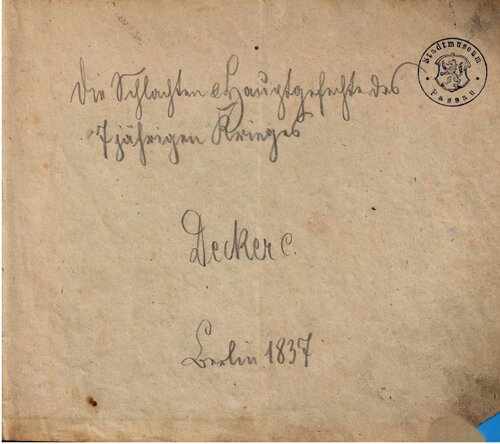 Stadtmuseum
Passau
Die Schlachten & Hauptgefechte des
7 jährigen Krieges
Decker C.
Berlin 1837